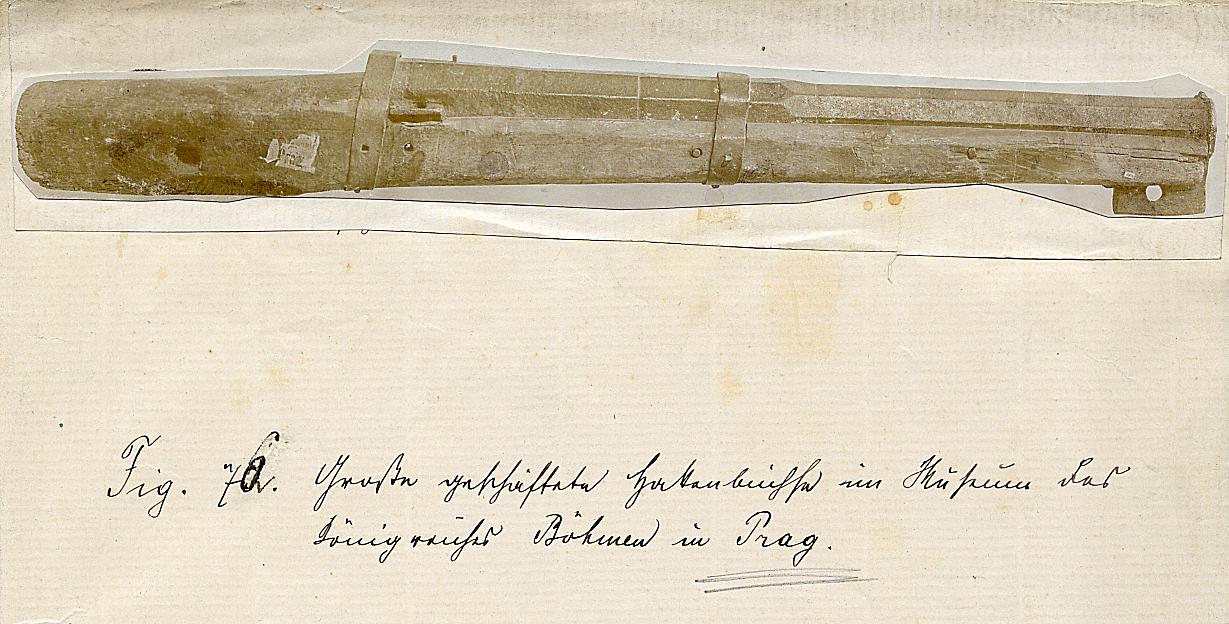 Fig. 76. Große geschäftete Hakenbüchse im Museum des
Königreiches Böhmen in Prag.